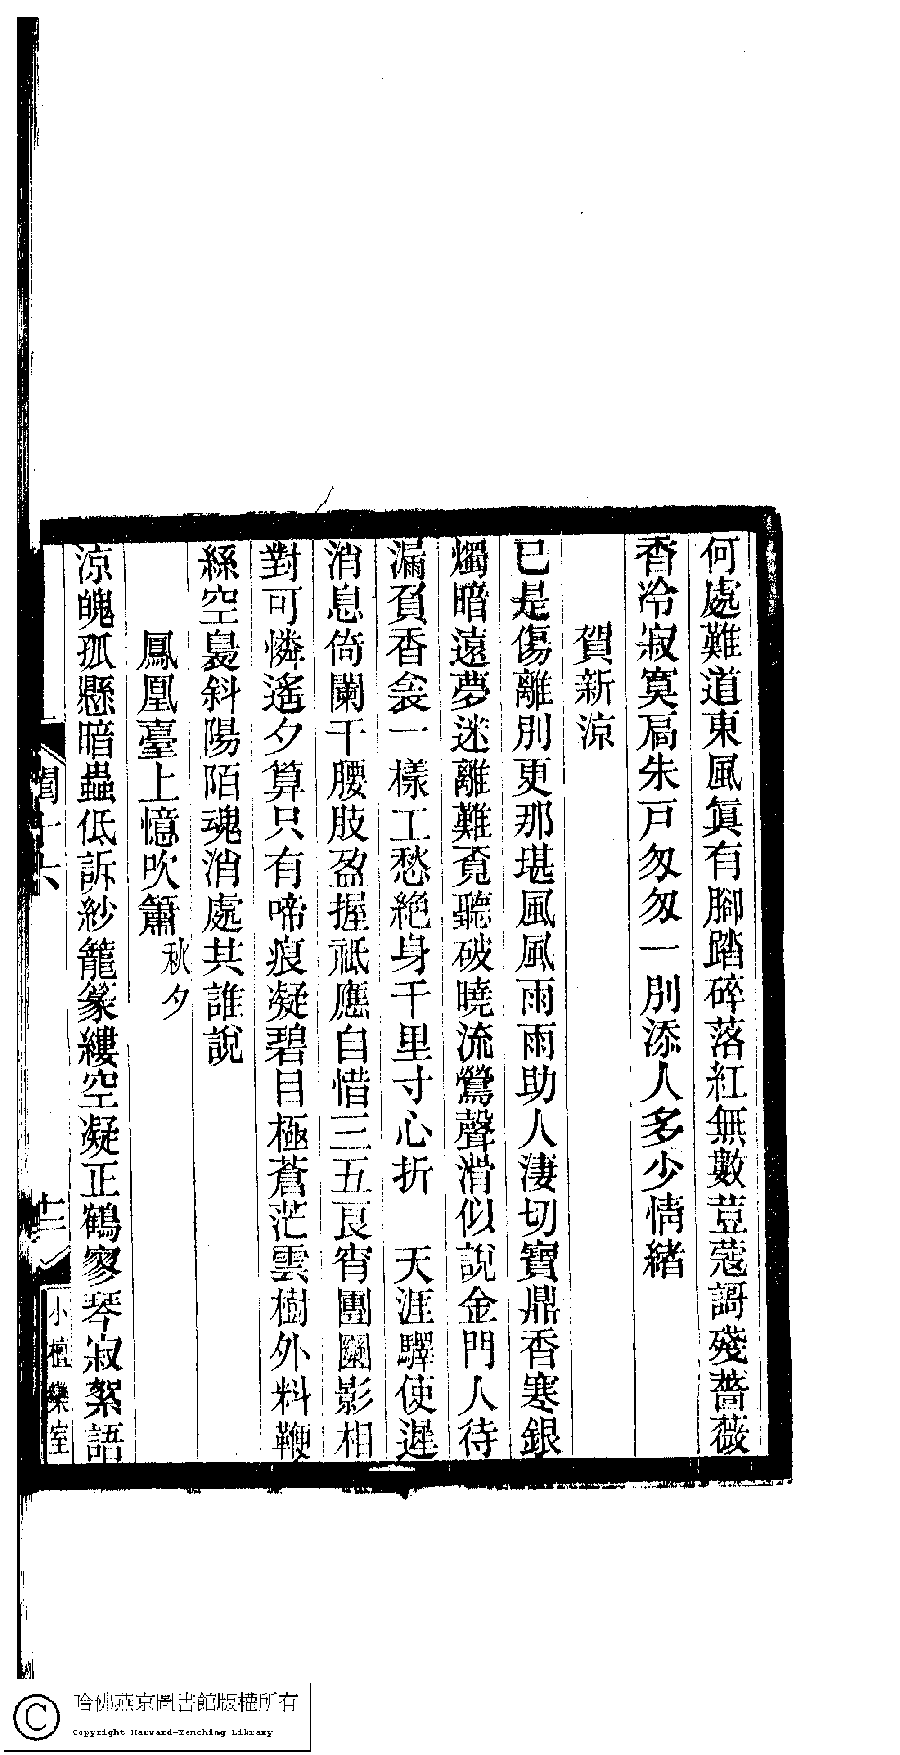 何處難道東風眞有腳踏碎落紅無數荳蔻謌殘薔薇
香冷寂寞扃朱戸匆匆一別添人多少情緒
賀新涼
已是傷離別更那堪風風雨雨助人淒切寶鼎香寒銀
燭暗遠夢迷離難覔聽破曉流鶯聲滑似說金門人待
漏負香衾一樣工愁絕身千里寸心折　天涯驛使遲
消息倚闌干腰肢盈握祗應自惜三五良宵團圞影相
對可憐遙夕算只有啼痕凝碧目極蒼茫雲樹外料鞭
絲空裊斜陽陌魂消處共誰說
鳳凰臺上憶吹簫 秋夕
涼魄孤懸暗蟲低訴紗籠篆縷空凝正鶴寥琴寂絮語
十二
小檀欒室
哈佛燕京圖書館版權所有
Copyright Harvard-Yenching Library